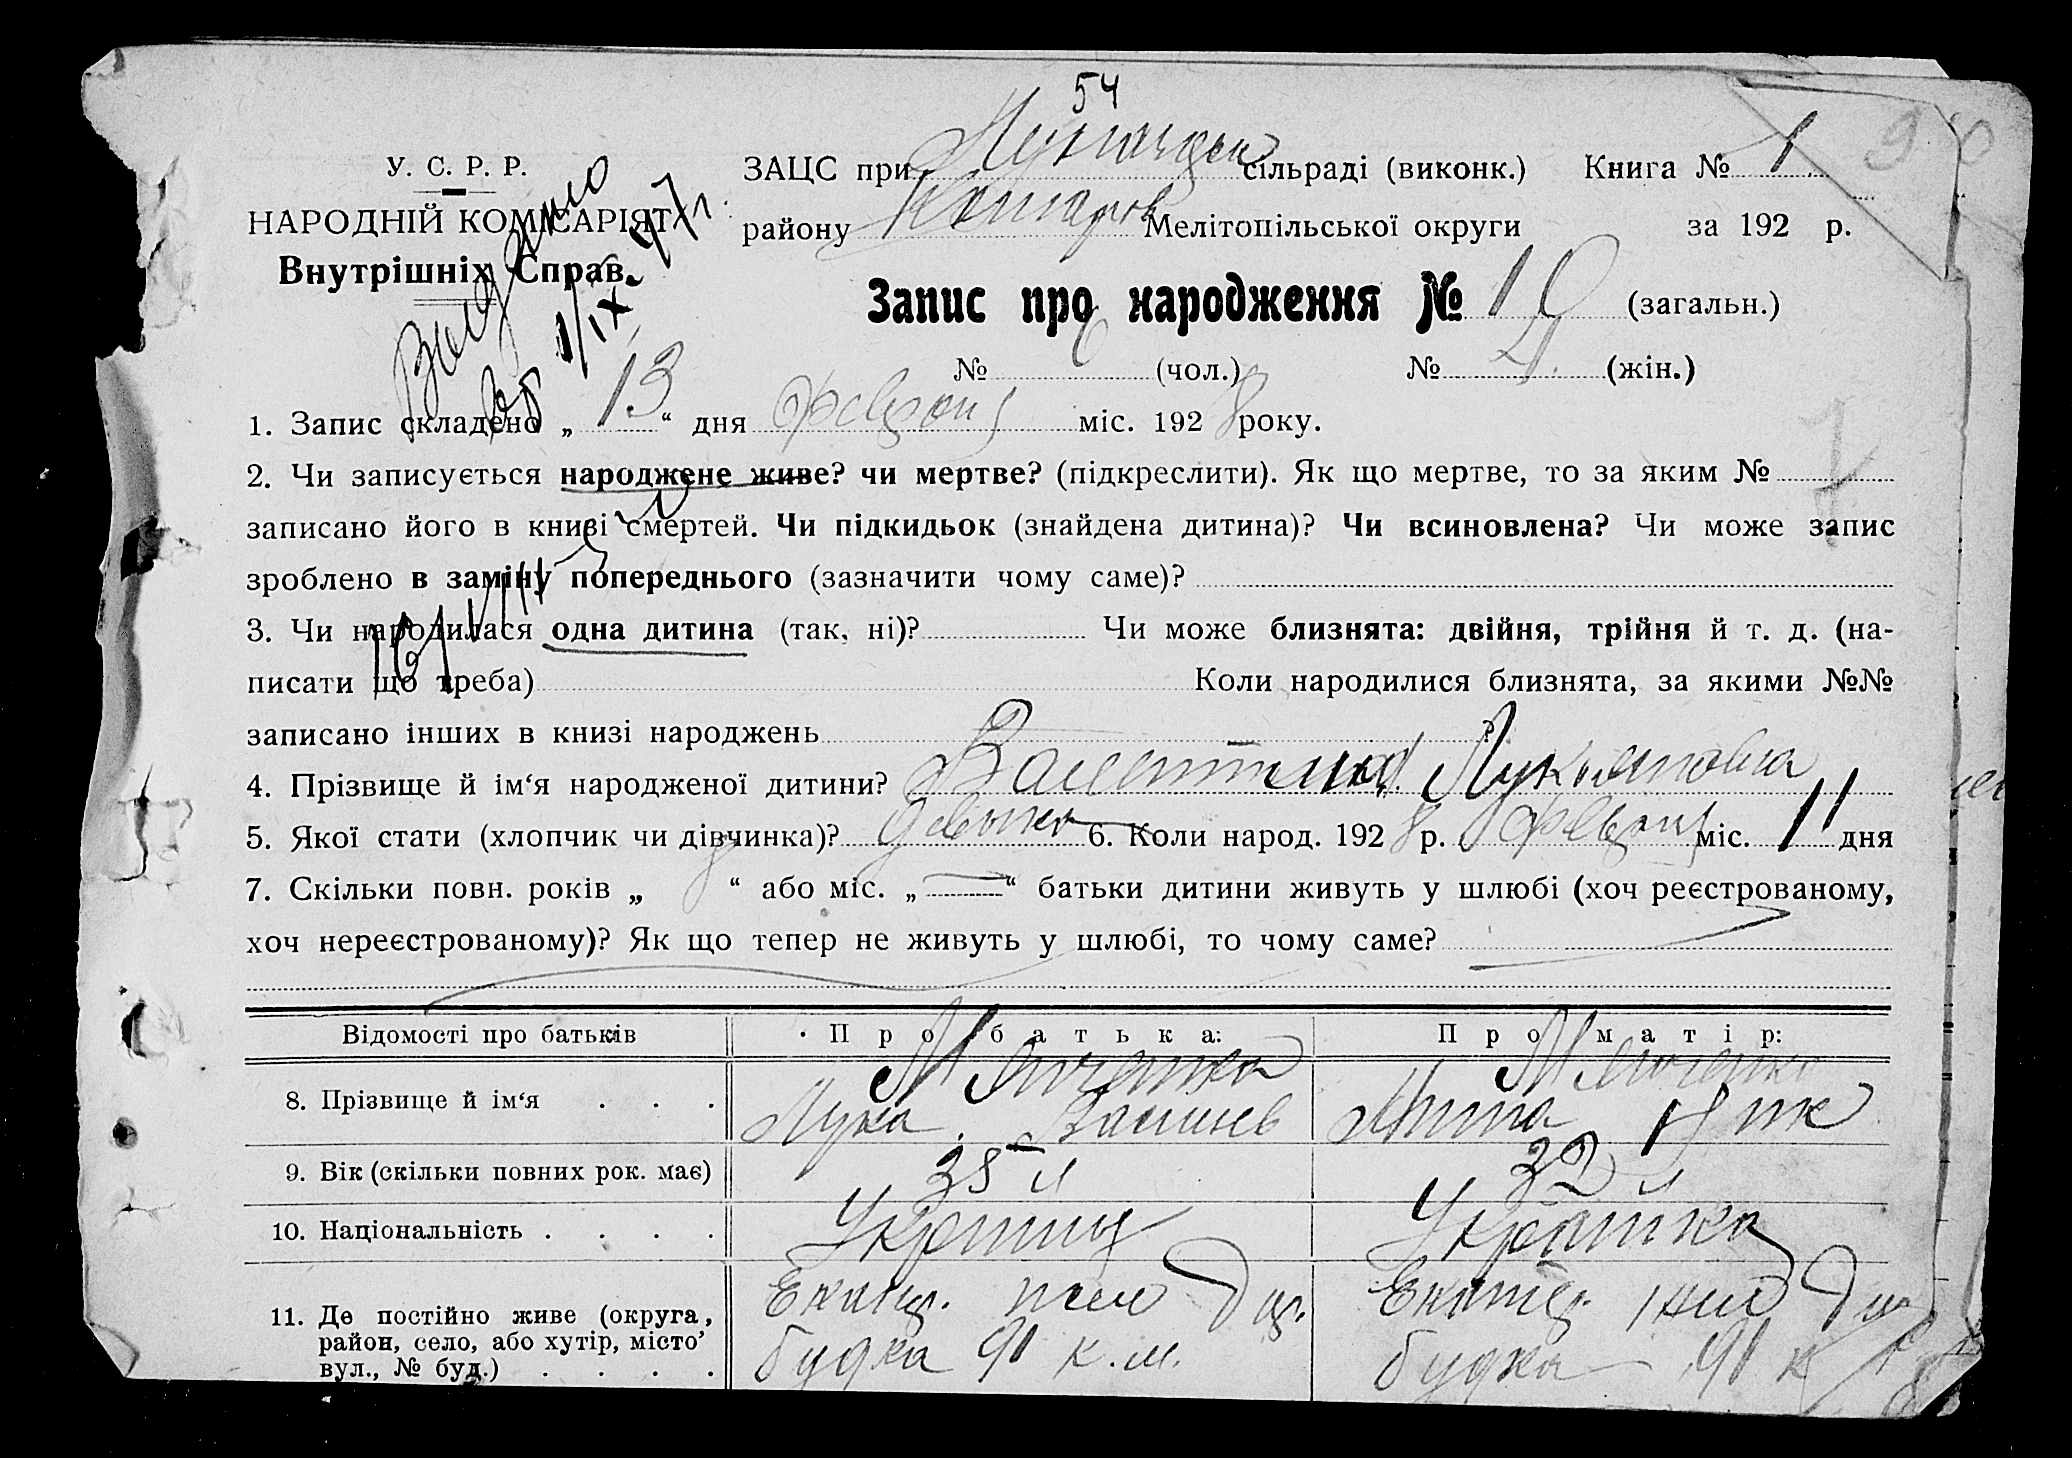 54
У. С. Р. Р.
НАРОДНІЙ КОМІСАРІЯТ
Внутрішніх Справ.
ЗАЦС при сільраді (виконк.) Книга № 1
району Мелітопільської округи за 192 р.
Запис про народження № 10 (загальн.)
№ 6 (чол.) № 4 (жін.)
1. Запис складено „ 13 “ дня міс. 1928 року.
2. Чи записується народжене живе? чи мертве? (підкреслити). Як що мертве, то за яким №
записано його в книзі смертей. Чи підкидьок (знайдена дитина)? Чи всиновлена? Чи може запис
зроблено в заміну попереднього (зазначити чому саме)?
3. Чи народилася одна дитина (так, ні)? Чи може близнята: двійня, трійня й т. д. (на-
писати що треба) Коли народилися близнята, за якими №№
записано інших в книзі народжень ?
4. Прізвище й ім‘я народженої дитини? Валентина Лукьяновна
5. Якої стати (хлопчик чи дівчинка)? 6. Коли народ. 1928 р. міс. 11 дня
7. Скільки повн. років „ 8 “ або міс. „ — “ батьки дитини живуть у шлюбі (хоч реєстрованому,
хоч нереєстрованому)? Як що тепер не живуть у шлюбі, то чому саме?
Відомості про батьків Про батька: Про матір:
8. Прізвище й ім‘я Лука Анна
9. Вік (скільки повних рок. має) 35 л 32 л
10. Національність
11. Де постійно живе (округа,
район, село, або хутір, місто
вул., № буд.) будка 91 к.м. будка 91 к